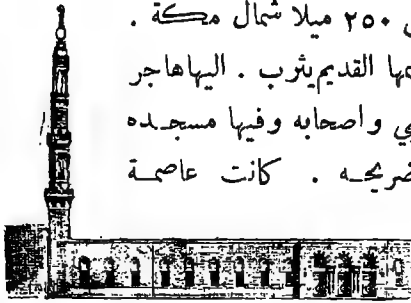 ٢٥٠ ميلا شمال مكة .
القديم يثرب . اليها هاجر
واصحابه وفيها مسجده
. كانت عاصمة